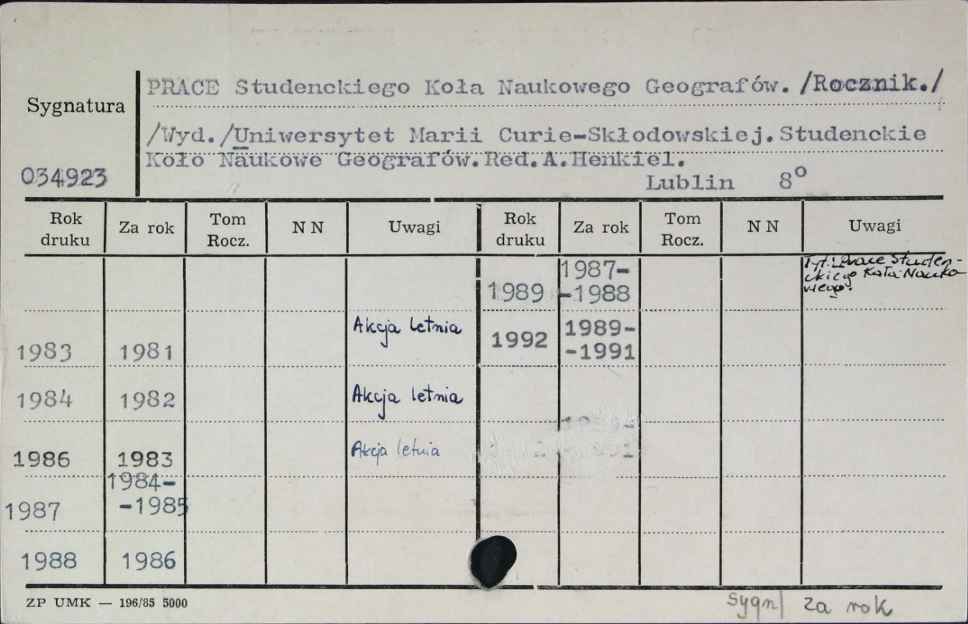 PRACE Studenckiego Koła Naukowego Geografów. /Rocznik./
Sygnatura
/Wyd./Uniwersytet Marii Curie-Skłodowskiej. Studenckie
Koło Naukowe Geografów. Red. A. Henkiel.
034923
Lublin 8°
Rok druku Za rok Tom Rocz. N N Uwagi Rok druku Za rok Tom Rocz. N N Uwagi
1989 1987-
-1988 Tyt: Prace Studen-
ckiego Koła Nauko
wego.
1983 1981 Akcja letnia 1992 1989-
-1991
1984 1982 Akcja letnia
1986 1983 Akcja letnia
1987 1984-
-1985
1988 1986
ZP UMK — 196/85 5000
sygn/ za rok